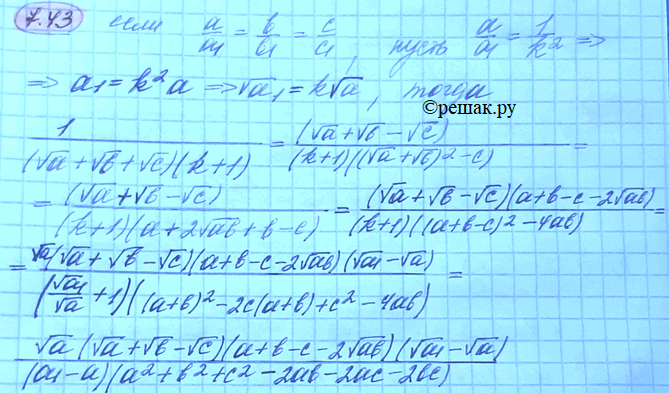 7.43 если a/a₁ = b/b₁ = c/c₁, пусть a/a₁ = 1/k² =>
=> a₁ = k²a => √a₁ = k√a, тогда
©решак.ру
1/((√a + √b + √c)(k+1)) = (√a + √b − √c)/((k+1)((√a + √b)² − c)) =
= (√a + √b − √c)/((k+1)(a + 2√ab + b − c)) = (√a + √b − √c)(a + b − c − 2√ab)/((k+1)((a + b − c)² − 4ab)) =
= √a(√a + √b − √c)(a + b − c − 2√ab)(√a₁ − √a)/((√a₁/√a + 1)((a + b)² − 2c(a + b) + c² − 4ab)) =
√a(√a + √b − √c)(a + b − c − 2√ab)(√a₁ − √a)/((a₁ − a)(a² + b² + c² − 2ab − 2ac − 2bc))